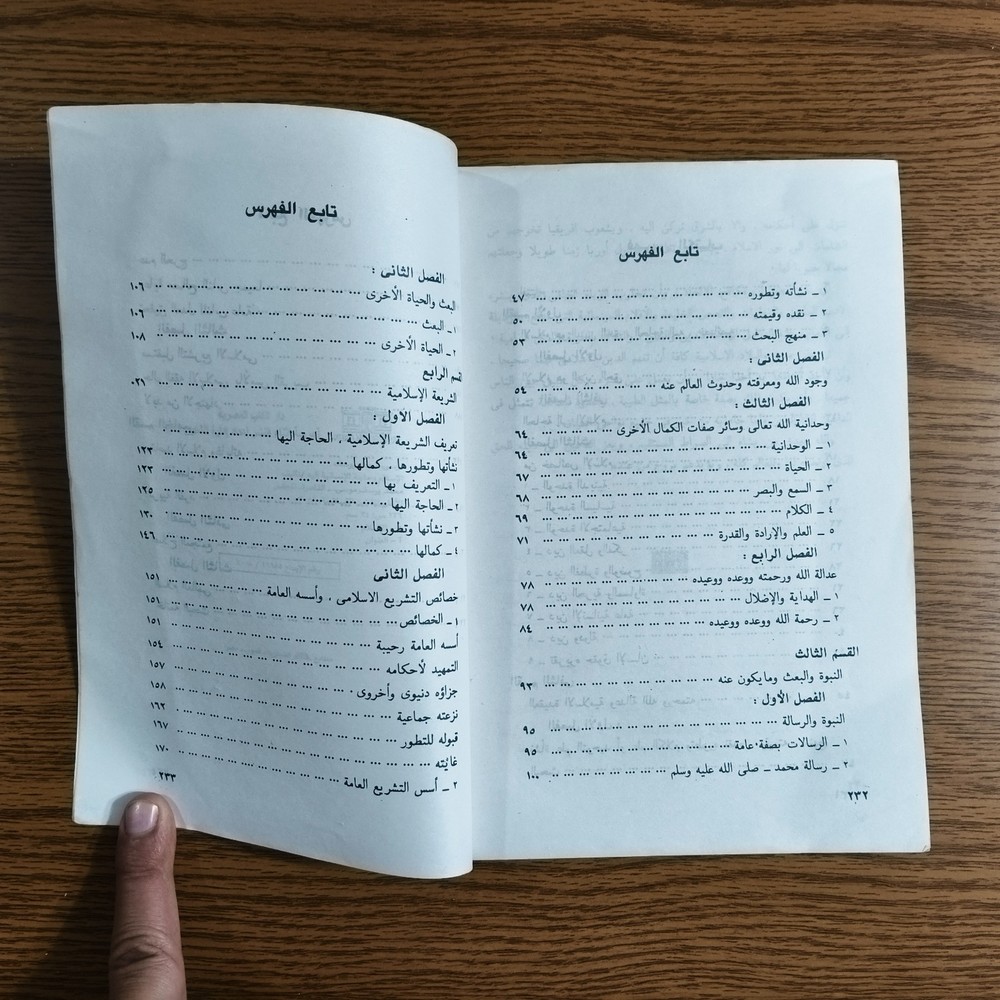 تابع الفهرس
١ ـ نشأته وتطوره ... ٤٧
٢ ـ نقده وقيمته ... ٥٠
٣ ـ منهج البحث ... ٥٣
الفصل الثانى :
وجود الله ومعرفته وحدوث العالم عنه ... ٥٤
الفصل الثالث :
وحدانية الله تعالى وسائر صفات الكمال الأخرى ... ٦٤
١ ـ الوحدانية ... ٦٤
٢ ـ الحياة ... ٦٧
٣ ـ السمع والبصر ... ٦٨
٤ ـ الكلام ... ٦٩
٥ ـ العلم والإرادة والقدرة ... ٧١
الفصل الرابع :
عدالة الله ورحمته ووعده ووعيده ... ٧٨
١ ـ الهداية والإضلال ... ٧٨
٢ ـ رحمة الله ووعده ووعيده ... ٨٤
القسم الثالث
النبوة والبعث ومايكون عنه ... ٩٣
الفصل الأول :
النبوة والرسالة ... ٩٥
١ ـ الرسالات بصفة عامة ... ٩٥
٢ ـ رسالة محمد ـ صلى الله عليه وسلم ... ١٠٠
٢٣٢
تابع الفهرس
الفصل الثانى :
البعث والحياة الأخرى ... ١٠٦
١ ـ البعث ... ١٠٦
٢ ـ الحياة الأخرى ... ١٠٨
قسم الرابع
الشريعة الإسلامية ... ٠٢١
الفصل الاول :
تعريف الشريعة الإسلامية . الحاجة اليها ...
نشأتها وتطورها . كمالها ... ١٢٣
١ ـ التعريف بها ... ١٢٣
٢ ـ الحاجة اليها ... ١٢٥
٣ ـ نشأتها وتطورها ... ١٣٠
٤ ـ كمالها ... ١٤٦
الفصل الثانى
خصائص التشريع الاسلامى . وأسسه العامة ... ١٥١
١ ـ الخصائص ... ١٥١
أسه العامة رحيبة ... ١٥١
التمهيد لأحكامه ... ١٥٤
جزاؤه دنيوى وأخروى . ... ١٥٧
نزعته جماعية ... ١٥٨
قبوله للتطور ... ١٦٢
غائيته ... ١٦٧
٢ ـ أسس التشريع العامة ... ١٧٠
٢٣٣